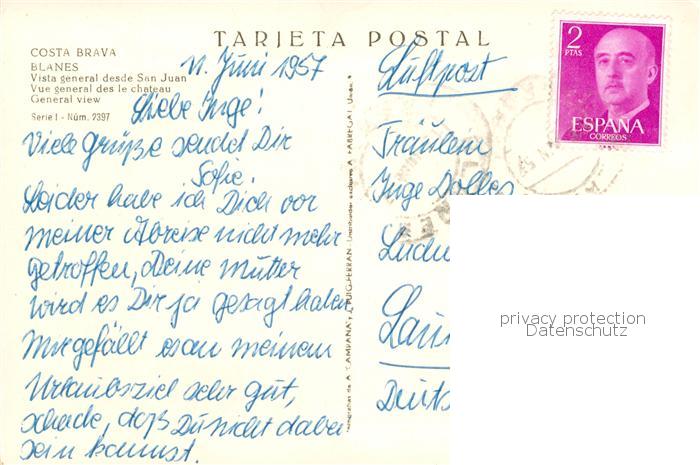 TARJETA POSTAL
COSTA BRAVA
BLANES
Vista general desde San Juan
Vue general des le chateau
General view
Serie I - Núm. 2397
11. Juni 1957
Liebe Inge!
Viele Grüße sendet Dir
Sofie.
Leider habe ich Dich vor
meiner Abreise nicht mehr
getroffen, Deine Mutter
wird es Dir ja gesagt haben
Mir gefällt es an meinem
Urlaubsziel sehr gut,
schade, daß Du nicht dabei
sein kannst.
Luftpost
Fräulein
Inge Dolles
Ludw
Lau
Deuts
2
PTAS
ESPAÑA
CORREOS
privacy protection
Datenschutz